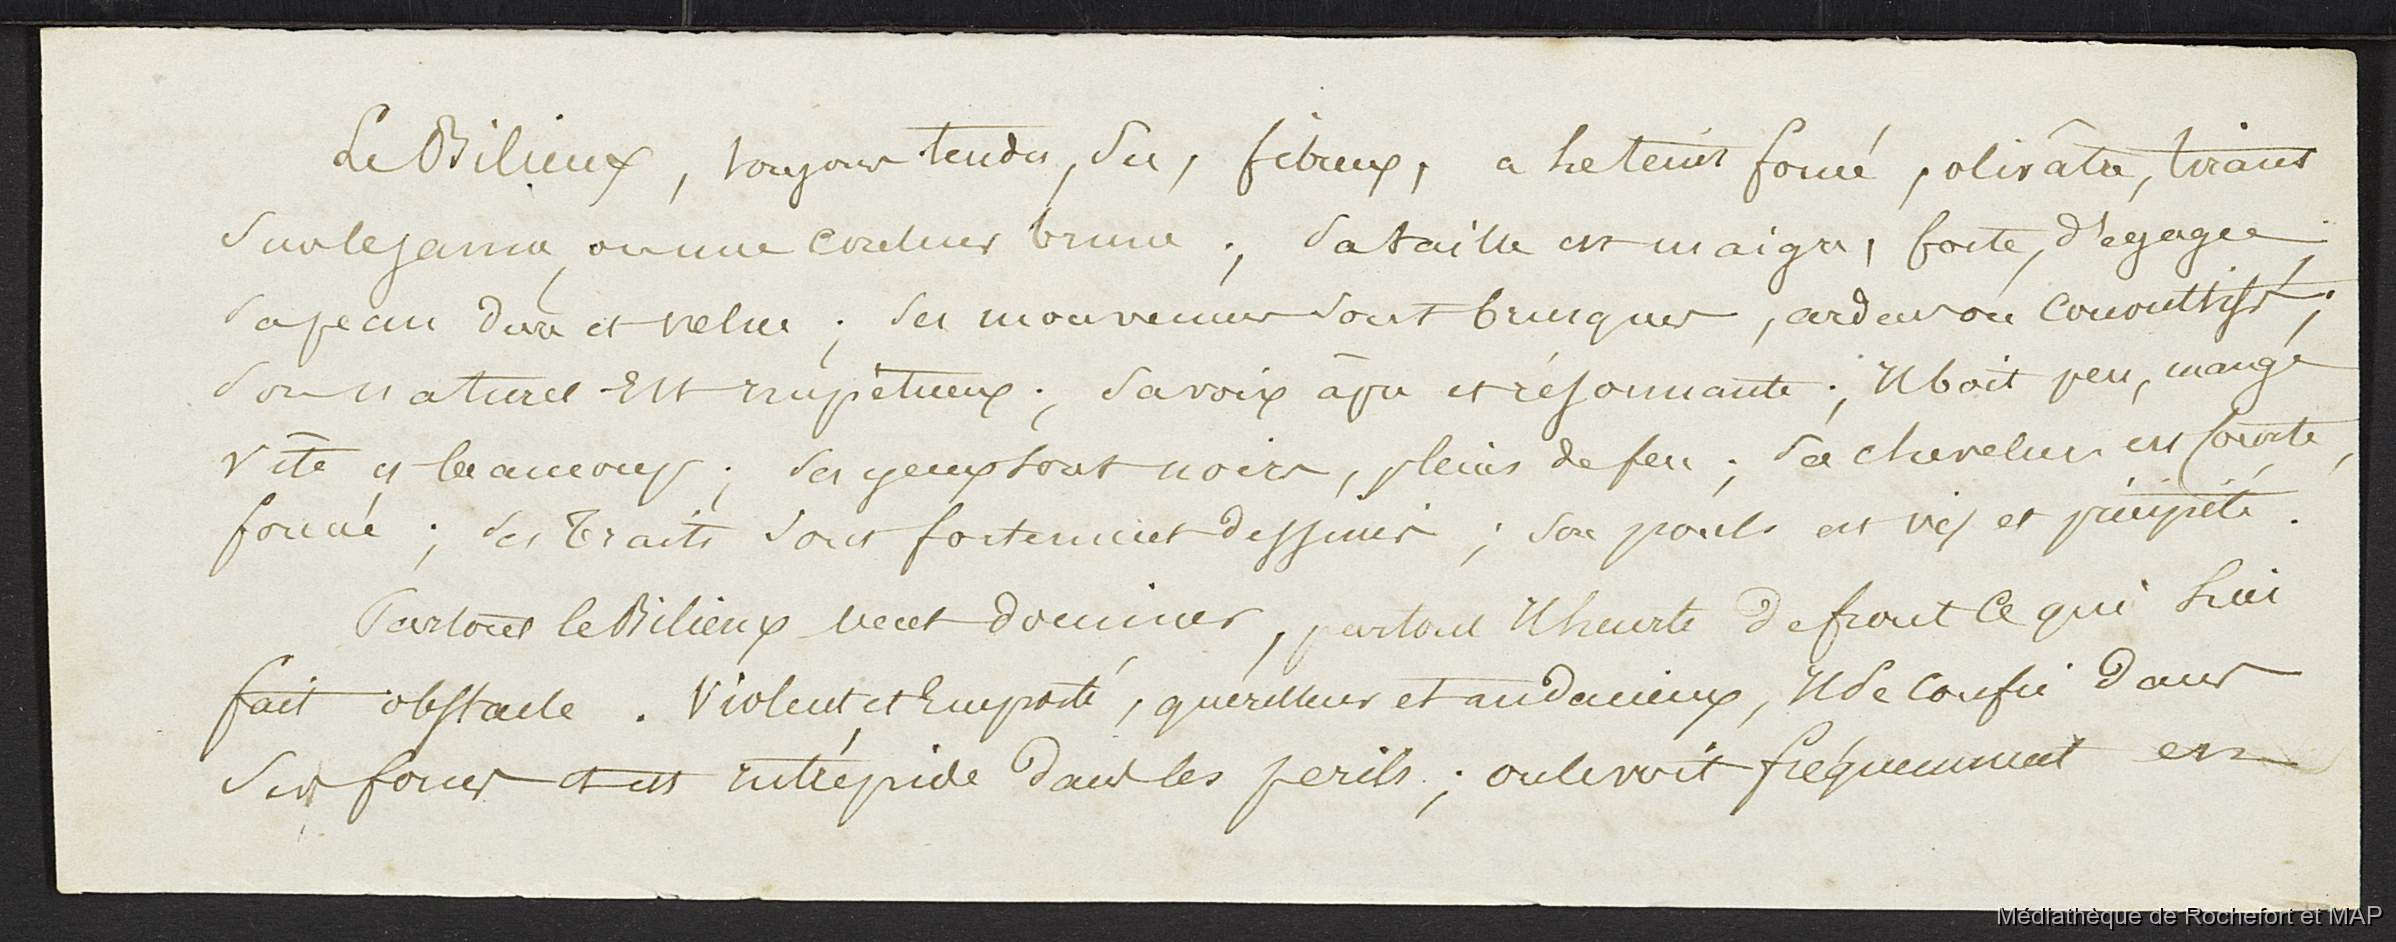 Le Bilieux, toujours tendu, sec, fibreux, a le teint foncé, olivâtre, tirant
sur le jaune, ou une couleur brune ; sa taille est maigre, forte, d'egagée,
sa peau dure et velue ; ses mouvemens sont brusques, ardens ou convulsifs ;
son naturel est impétueux ; sa voix âpre et résonnante ; Il boit peu, mange
vîte et beaucoup ; ses yeux sont noirs, pleins de feu ; sa chevelure est courte,
foncée ; ses traits sont fortement dessinés ; son pouls est vif et précipité.
Partout le Bilieux veut dominer, partout Il heurte de front ce qui lui
fait obstacle. Violent et Emporté, querelleur et audacieux, Il se confie dans
ses forces et est intrépide dans les perils ; on le voit fréquemment en
Médiathèque de Rochefort et MAP